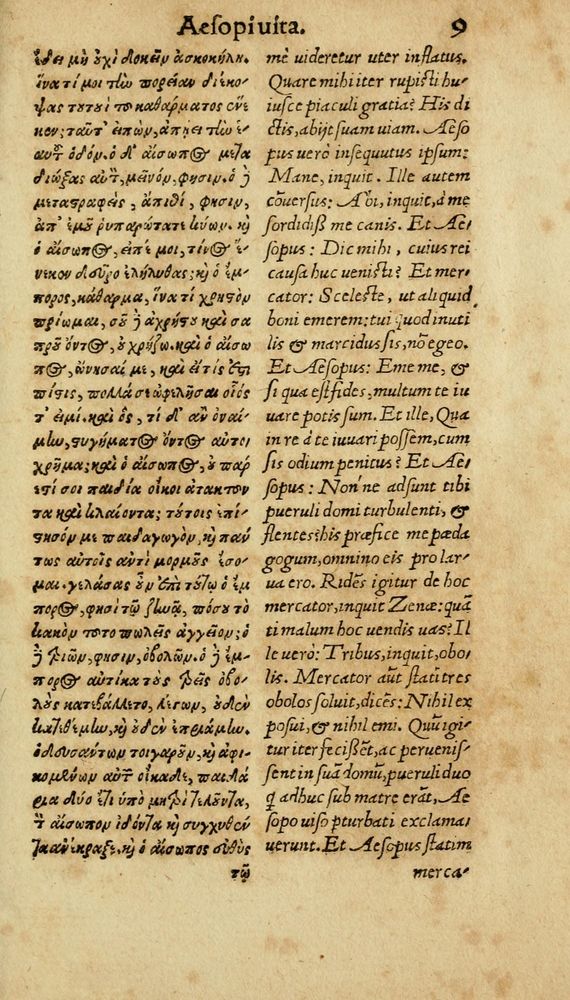 Aesopi uita. 9
ἔδει μὴ οὐχὶ δοκεῖν ἀσκοκήλη.
ἵνα τί μοι τὴν πορείαν διέκο-
ψας τούτου τοῦ καθάρματος ἕνε
κεν; ταῦτ' ἐιπὼν, ἀπῄει τὴν ἑ-
αυτοῦ ὁδόν. ὁ δ' αἴσωπος μετα
διώξας αὐτὸν, μεῖνον, φησίν. ὁ δὲ
μεταστραφεὶς, ἄπιθι, φησιν,
ἀπ' ἐμοῦ ῥυπαρώτατε κύων. καὶ
ὁ αἴσωπος, ἐιπέ μοι, τίνος ἕ-
νεκεν δεῦρο ἐλήλυθας; καὶ ὁ ἔμ-
πορος, κάθαρμα, ἵνα τὶ χρηστὸν
πρίωμαι, σοῦ δὲ ἀχρήστου καὶ σα
προῦ ὄντος, οὐ χρῄζω. καὶ ὁ αἴσω
πος, ὤνησαί με, καὶ εἴ τίς ἐστι
πίστις, πολλά σε ὠφελῆσαι οἷός
τ' ἐιμί. καὶ ὃς, τί δ' ἂν ὀναί-
μην, στυγήματος ὄντος αὐτο-
χρῆμα; καὶ ὁ αἴσωπος, οὐ πάρ
εστί σοι παιδία οἴκοι ἄτακτον
τα καὶ κλαίοντα; τούτοις ἐπί-
στησόν με παιδαγωγὸν, καὶ πάν
τως αὐτοῖς ἀντὶ μορμοῦς ἔσο-
μαι. γελάσας οὖν ἐπὶ τούτῳ ὁ ἔμ
πορος, φησὶ τῷ ζηνᾷ, πόσου τὸ
κακὸν τοῦτο πωλεῖς ἀγγεῖον; ὁ
δὲ τριῶν, φησιν, ὀβολῶν. ὁ δὲ ἔμ-
πορος αὐτίκα τοὺς τρεῖς ὀβο-
λοὺς κατεβάλλετο, λέγων, οὐδὲν
κατεθέμην, καὶ οὐδὲν ἐπριάμην.
ὁδευσάντων τοιγαροῦν, καὶ ἀφι-
κομένων αὐτῶν οἴκαδε, παιδά
ρια δύο ἔτι ὑπὸ μητρὶ τελοῦντα,
τὸν αἴσωπον ἰδόντα καὶ συγχυθέν
τα ἀνέκραξε. καὶ ὁ αἴσωπος εὐθὺς
τῷ
mè uideretur uter inflatus.
Quare mihi iter rupisti hu-
iusce piaculi gratia? His di
ctis, abijt suam uiam. Aeso
pus uerò insequutus ipsum:
Mane, inquit. Ille autem
cõuersus: Abi, inquit, à me
sordidiss. me canis. Et Ae-
sopus: Dic mihi, cuius rei
causa huc uenisti? Et mer-
cator: Sceleste, ut aliquid
boni emerem: tui quod inuti
lis & marcidus sis, nõ egeo.
Et Aesopus: Eme me, &
si qua est fides, multum te iu
uare potis sum. Et ille, Qua
in re à te iuuari possem, cum
sis odium penitus? Et Ae-
sopus: Non'ne adsunt tibi
pueruli domi turbulenti, &
flentes: his præfice me pæda
gogum, omnino eis pro lar-
ua ero. Ridẽs igitur de hoc
mercator, inquit Zenæ: quã
ti malum hoc uendis uas? Il
le uerò: Tribus, inquit, obo-
lis. Mercator aũt statĩ tres
obolos soluit, dicẽs: Nihil ex
posui, & nihil emi. Quũ igi-
tur iter fecissẽt, ac peruenis-
sent in suã domũ, pueruli duo
q̃ adhuc sub matre erãt, Ae
sopo uiso pturbati exclama-
uerunt. Et Aesopus statim
merca-